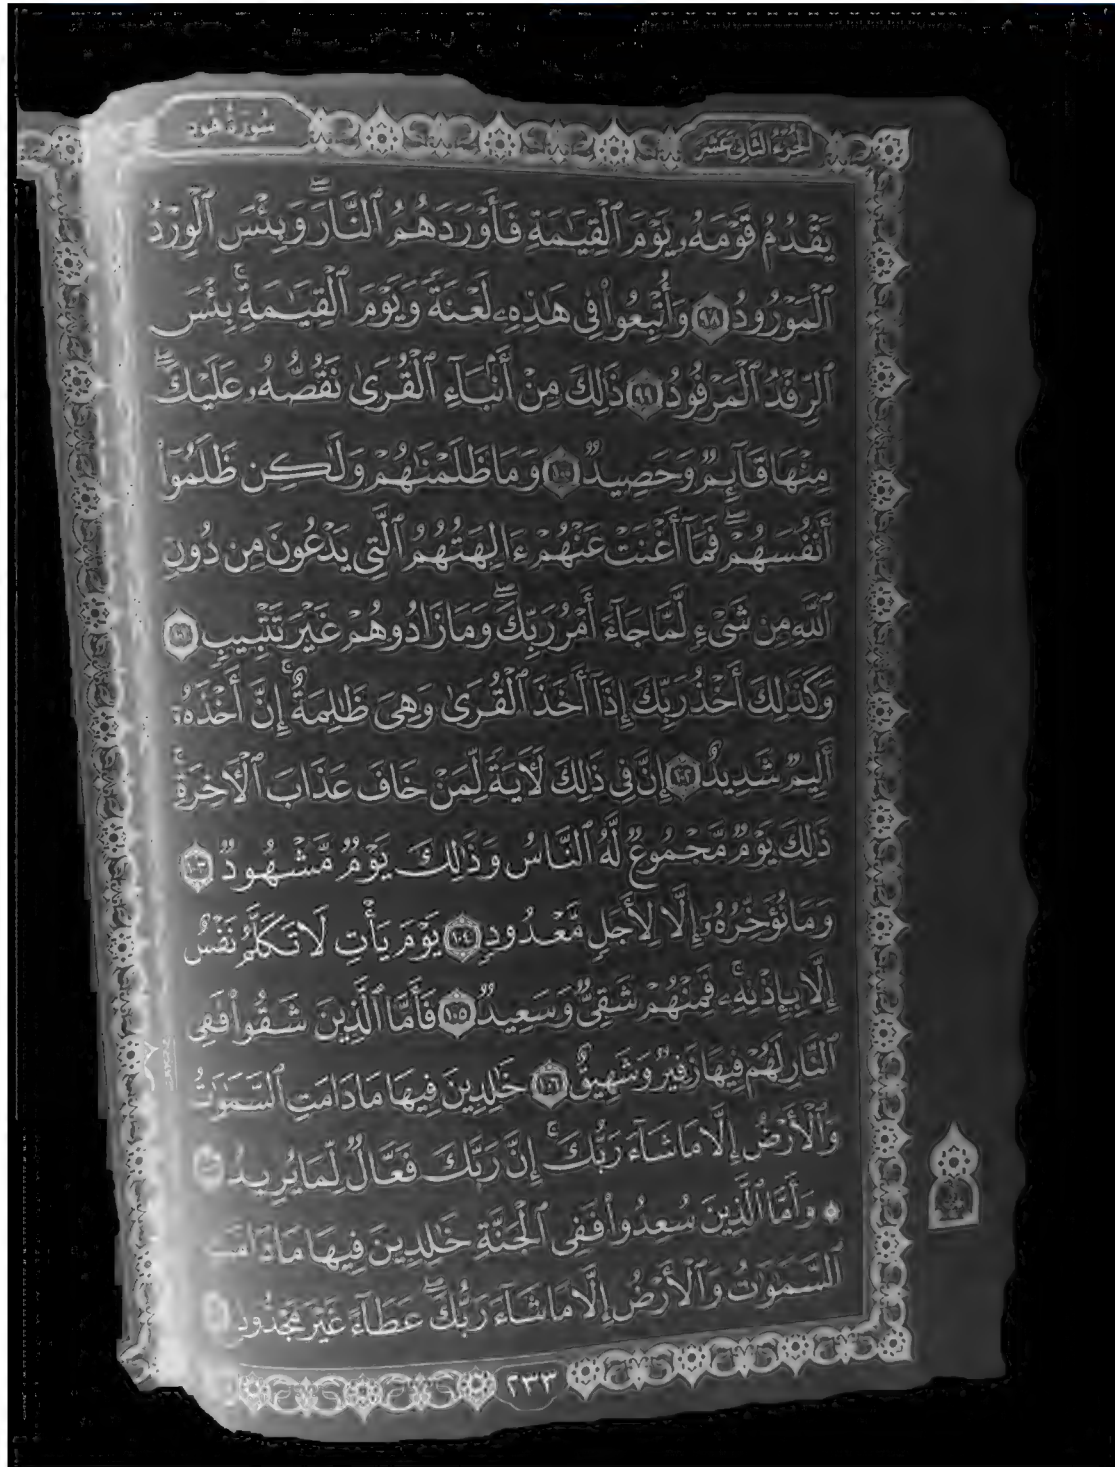 سُورَةُ هُودٍ
الجُزْءُ الثَّانِي عَشَرَ
يَقْدُمُ قَوْمَهُۥ يَوْمَ ٱلْقِيَٰمَةِ فَأَوْرَدَهُمُ ٱلنَّارَۖ وَبِئْسَ ٱلْوِرْدُ
ٱلْمَوْرُودُ ٩٨ وَأُتْبِعُوا۟ فِى هَٰذِهِۦ لَعْنَةً وَيَوْمَ ٱلْقِيَٰمَةِۚ بِئْسَ
ٱلرِّفْدُ ٱلْمَرْفُودُ ٩٩ ذَٰلِكَ مِنْ أَنۢبَآءِ ٱلْقُرَىٰ نَقُصُّهُۥ عَلَيْكَۖ
مِنْهَا قَآئِمٌ وَحَصِيدٌ ١٠٠ وَمَا ظَلَمْنَٰهُمْ وَلَٰكِن ظَلَمُوٓا۟
أَنفُسَهُمْۖ فَمَآ أَغْنَتْ عَنْهُمْ ءَالِهَتُهُمُ ٱلَّتِى يَدْعُونَ مِن دُونِ
ٱللَّهِ مِن شَىْءٍ لَّمَّا جَآءَ أَمْرُ رَبِّكَۖ وَمَا زَادُوهُمْ غَيْرَ تَتْبِيبٍ ١٠١
وَكَذَٰلِكَ أَخْذُ رَبِّكَ إِذَآ أَخَذَ ٱلْقُرَىٰ وَهِىَ ظَٰلِمَةٌۚ إِنَّ أَخْذَهُۥٓ
أَلِيمٌ شَدِيدٌ ١٠٢ إِنَّ فِى ذَٰلِكَ لَءَايَةً لِّمَنْ خَافَ عَذَابَ ٱلْءَاخِرَةِۚ
ذَٰلِكَ يَوْمٌ مَّجْمُوعٌ لَّهُ ٱلنَّاسُ وَذَٰلِكَ يَوْمٌ مَّشْهُودٌ ١٠٣
وَمَا نُؤَخِّرُهُۥٓ إِلَّا لِأَجَلٍ مَّعْدُودٍ ١٠٤ يَوْمَ يَأْتِ لَا تَكَلَّمُ نَفْسٌ
إِلَّا بِإِذْنِهِۦۚ فَمِنْهُمْ شَقِىٌّ وَسَعِيدٌ ١٠٥ فَأَمَّا ٱلَّذِينَ شَقُوا۟ فَفِى
ٱلنَّارِ لَهُمْ فِيهَا زَفِيرٌ وَشَهِيقٌ ١٠٦ خَٰلِدِينَ فِيهَا مَا دَامَتِ ٱلسَّمَٰوَٰتُ
وَٱلْأَرْضُ إِلَّا مَا شَآءَ رَبُّكَۚ إِنَّ رَبَّكَ فَعَّالٌ لِّمَا يُرِيدُ ١٠٧
۞ وَأَمَّا ٱلَّذِينَ سُعِدُوا۟ فَفِى ٱلْجَنَّةِ خَٰلِدِينَ فِيهَا مَا دَامَتِ
ٱلسَّمَٰوَٰتُ وَٱلْأَرْضُ إِلَّا مَا شَآءَ رَبُّكَۖ عَطَآءً غَيْرَ مَجْذُوذٍ
٢٣٣